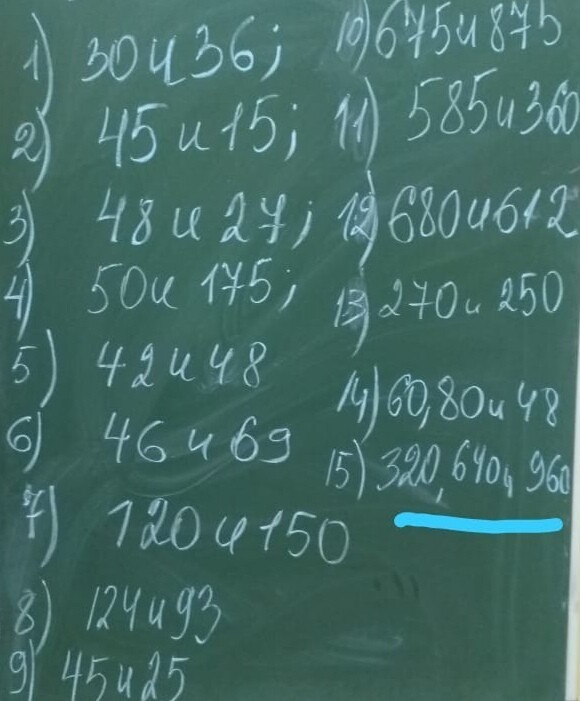 1) 30 и 36;
2) 45 и 15;
3) 48 и 27;
4) 50 и 175;
5) 42 и 48
6) 46 и 69
7) 120 и 150
8) 124 и 93
9) 45 и 25
10) 675 и 875
11) 585 и 360
12) 680 и 612
13) 270 и 250
14) 60, 80 и 48
15) 320, 640 и 960